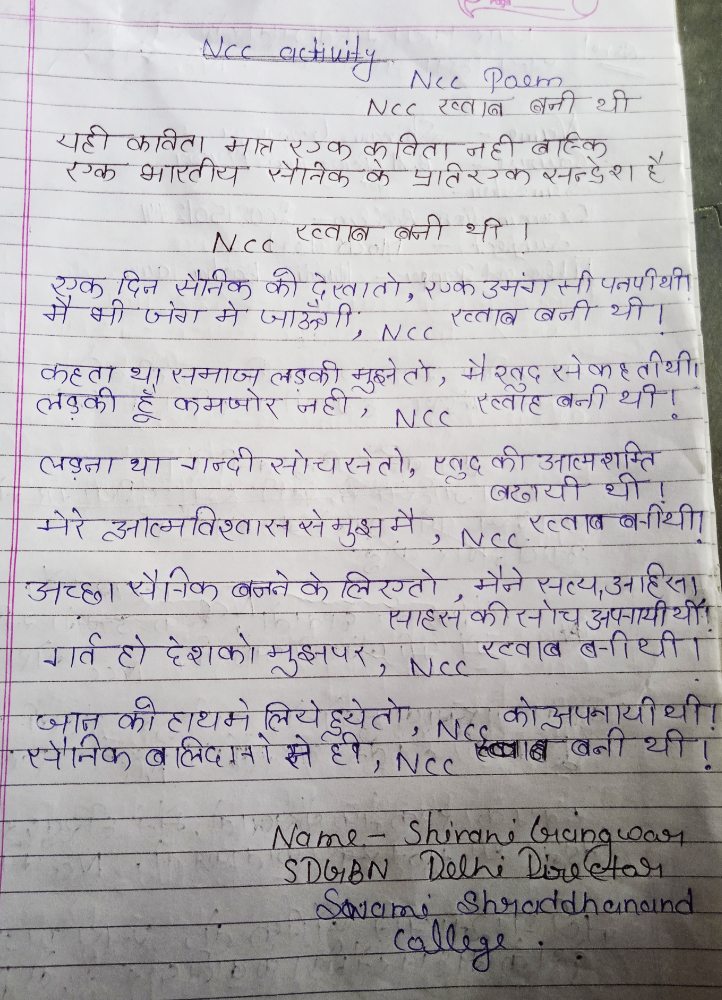 Page
Ncc activity
Ncc Poem
NCC ख्वाब बनी थी
यही कविता मात्र एक कविता नही बल्कि
एक भारतीय सैनिक के प्रति एक सन्देश है
NCC ख्वाब बनी थी।
एक दिन सैनिक को देखा तो, एक उमंग सी पनपी थी।
मै भी जंग मे जाऊँगी, NCC ख्वाब बनी थी।
कहता था समाज लड़की मुझे तो, मै खुद से कहती थी।
लड़की हूँ कमजोर नही, NCC ख्वाह बनी थी।
लड़ना था गन्दी सोच से तो, खुद की आत्मशक्ति
बढायी थी।
मेरे आत्मविश्वास से मुझ मै, NCC ख्वाब बनी थी।
अच्छा सैनिक बनने के लिए तो, मैने सत्य, अहिंसा,
साहस की सोच अपनायी थी।
गर्व हो देश को मुझपर, NCC ख्वाब बनी थी।
जान को हाथ मे लिये हुये तो, NCC को अपनायी थी।
सैनिक बलिदानो से ही, NCC ख्वाब बनी थी।
Name - Shivani Gangwar
SDGBN Delhi Director
Swami Shraddhanand
College.